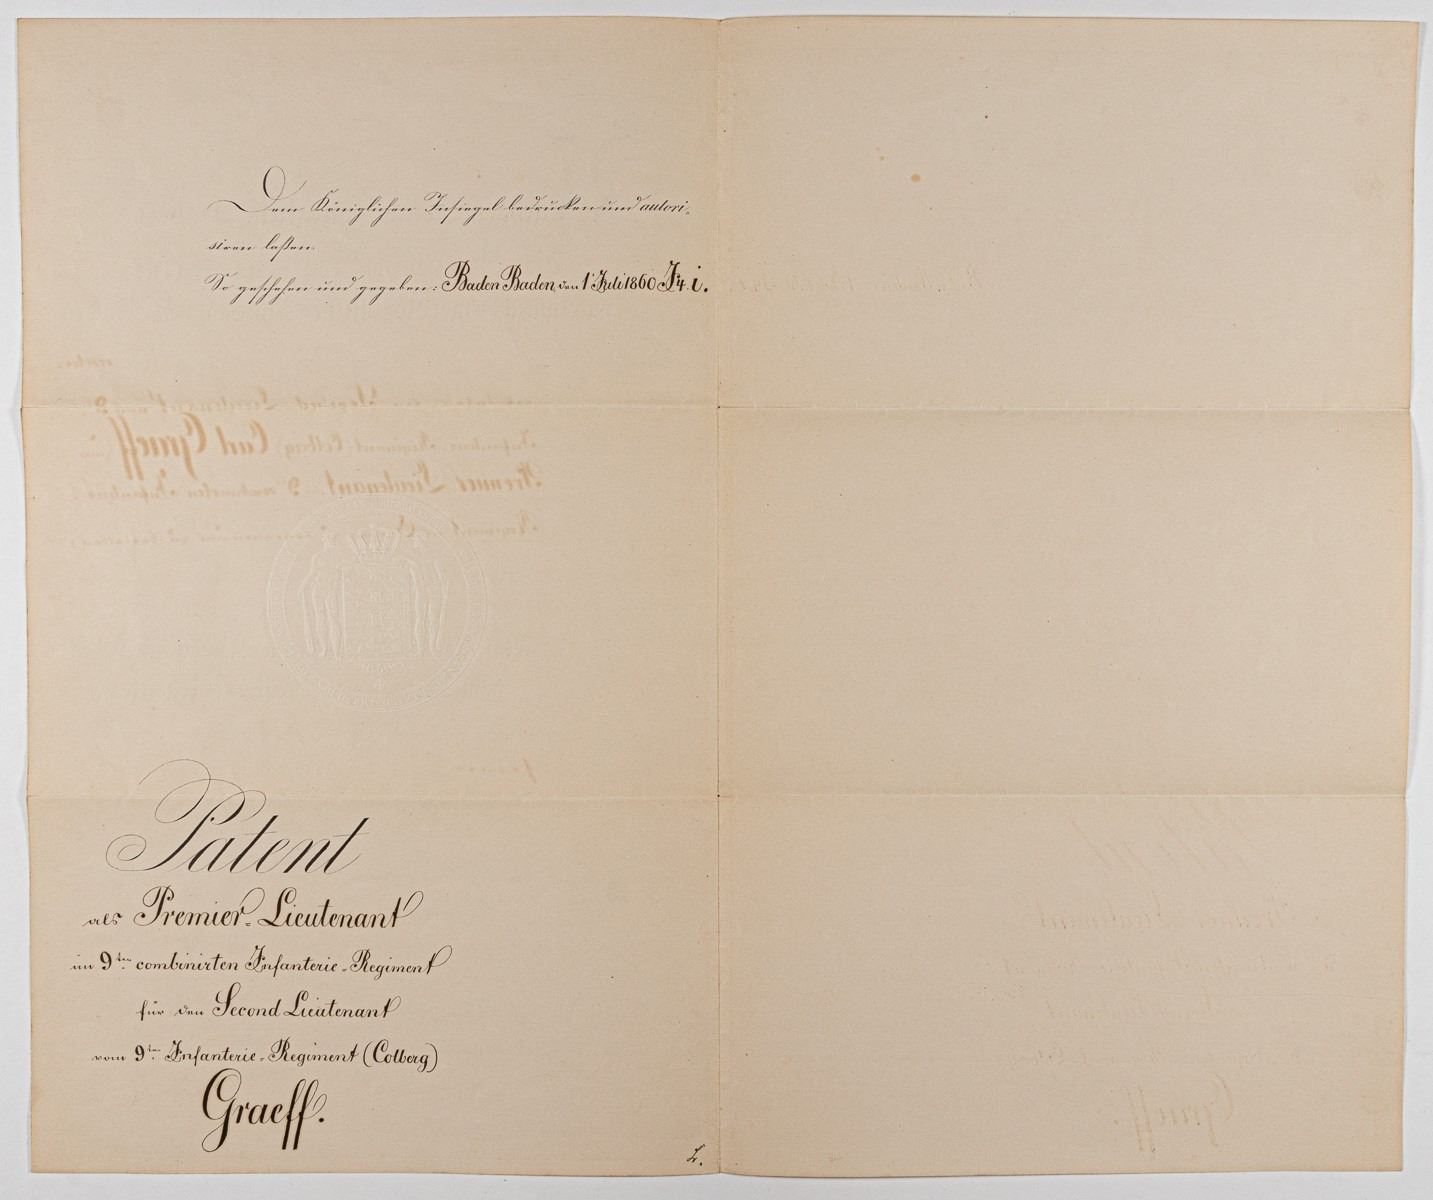 Dem Königlichen Insiegel bedrucken und autori-
siren laßen.
So geschehen und gegeben: Baden Baden, den 1t Juli 1860 J4i.
Patent
als Premier-Lieutenant
im 9ten combinirten Infanterie-Regiment
für den Second Lieutenant
vom 9ten Infanterie-Regiment (Colberg)
Graeff.